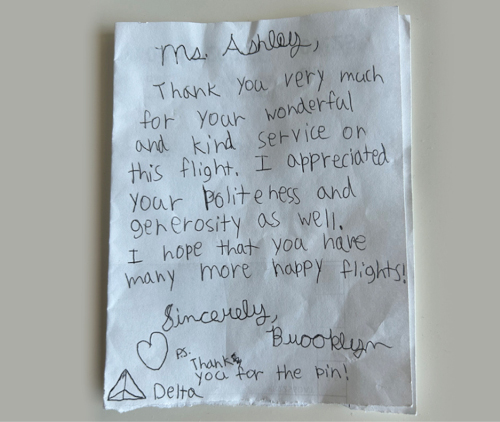 Ms. Ashley,
Thank you very much
for your wonderful
and kind service on
this flight. I appreciated
your politeness and
generosity as well.
I hope that you have
many more happy flights!
Sincerely,
Brooklyn
PS. Thank
you for the pin!
Delta